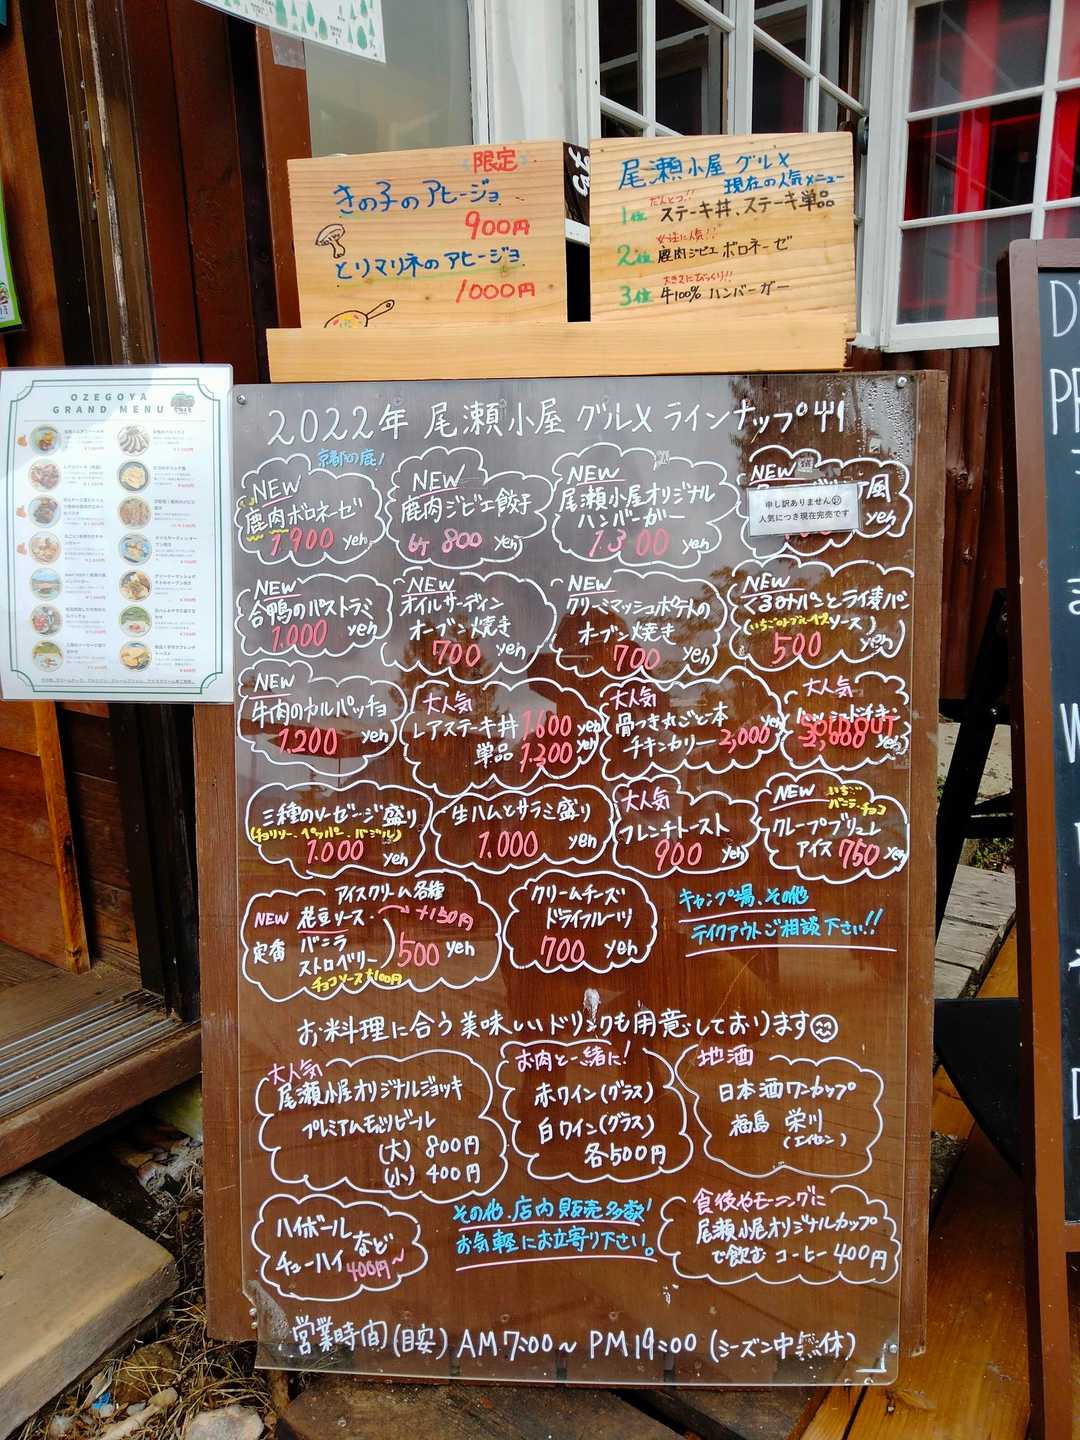 限定
きの子のアヒージョ
900円
とりマリネのアヒージョ
1000円
尾瀬小屋 グルメ
現在の人気メニュー
だんとつ!!
1位 ステーキ丼、ステーキ単品
女性に人気!!
2位 鹿肉ジビエ ボロネーゼ
大きさにびっくり!!
3位 牛100% ハンバーガー
OZEGOYA
GRAND MENU
2022年 尾瀬小屋 グルメ ラインナップ
京都の鹿!
NEW
鹿肉ボロネーゼ
1900 yen
NEW
鹿肉ジビエ餃子
6ケ 800 yen
NEW
尾瀬小屋オリジナル
ハンバーガー
1300 yen
NEW
風
申し訳ありません
人気につき現在完売です
yen
NEW
合鴨のパストラミ
1.000 yen
NEW
オイルサーディン
オーブン焼き
700 yen
NEW
クリーミマッシュポテトの
オーブン焼き
700 yen
NEW
くるみパンとライ麦パン
(いちごorブルーベリーソース)
500 yen
NEW
牛肉のカルパッチョ
1.200 yen
大人気
レアステーキ丼 1600 yen
単品 1300 yen
大人気
骨つき丸ごと一本
チキンカリー 2,000 yen
大人気
SOLD OUT
2,000 yen
三種のソーセージ盛り
(チョリソー、ペッパー、バジル)
1.000 yen
生ハムとサラミ盛り
1.000 yen
大人気
フレンチトースト
900 yen
NEW いちご
バニラ・チョコ
クレープブリュレ
アイス 750 yen
アイスクリーム各種
NEW 花豆ソース +150円
定番 バニラ 500 yen
ストロベリー
チョコソース+100円
クリームチーズ
ドライフルーツ
700 yen
キャンプ場、その他
テイクアウトご相談下さい!!
お料理に合う美味しいドリンクも用意しております
大人気
尾瀬小屋オリジナルジョッキ
プレミアムモルツビール
(大) 800円
(小) 400円
お肉と一緒に!
赤ワイン(グラス)
白ワイン(グラス)
各500円
地酒
日本酒ワンカップ
福島 栄川
(エイセン)
ハイボール
チューハイ など
400円〜
その他、店内販売多数!
お気軽にお立寄り下さい。
食後やモーニングに
尾瀬小屋オリジナルカップ
で飲む コーヒー 400円
営業時間(目安) AM 7:00〜 PM 19:00 (シーズン中無休)